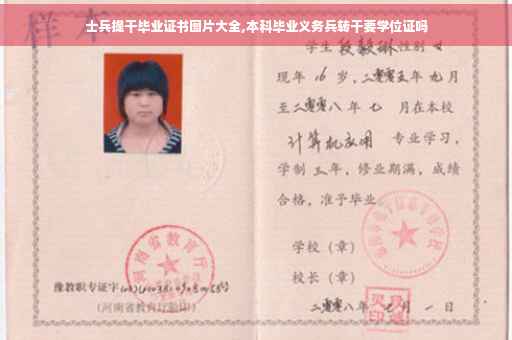 士兵提干毕业证书图片大全,本科毕业义务兵转干要学位证吗
样本
学生段毅琳性别女
现年16岁,二零零五年九月
至二零零八年七月在本校
计算机应用 专业学习,
学制三年,修业期满,成绩
合格,准予毕业
学校(章)
校长(章)
二零零八年七月一日
河南省教育厅
豫教职专证字
(河南省教育厅验印)